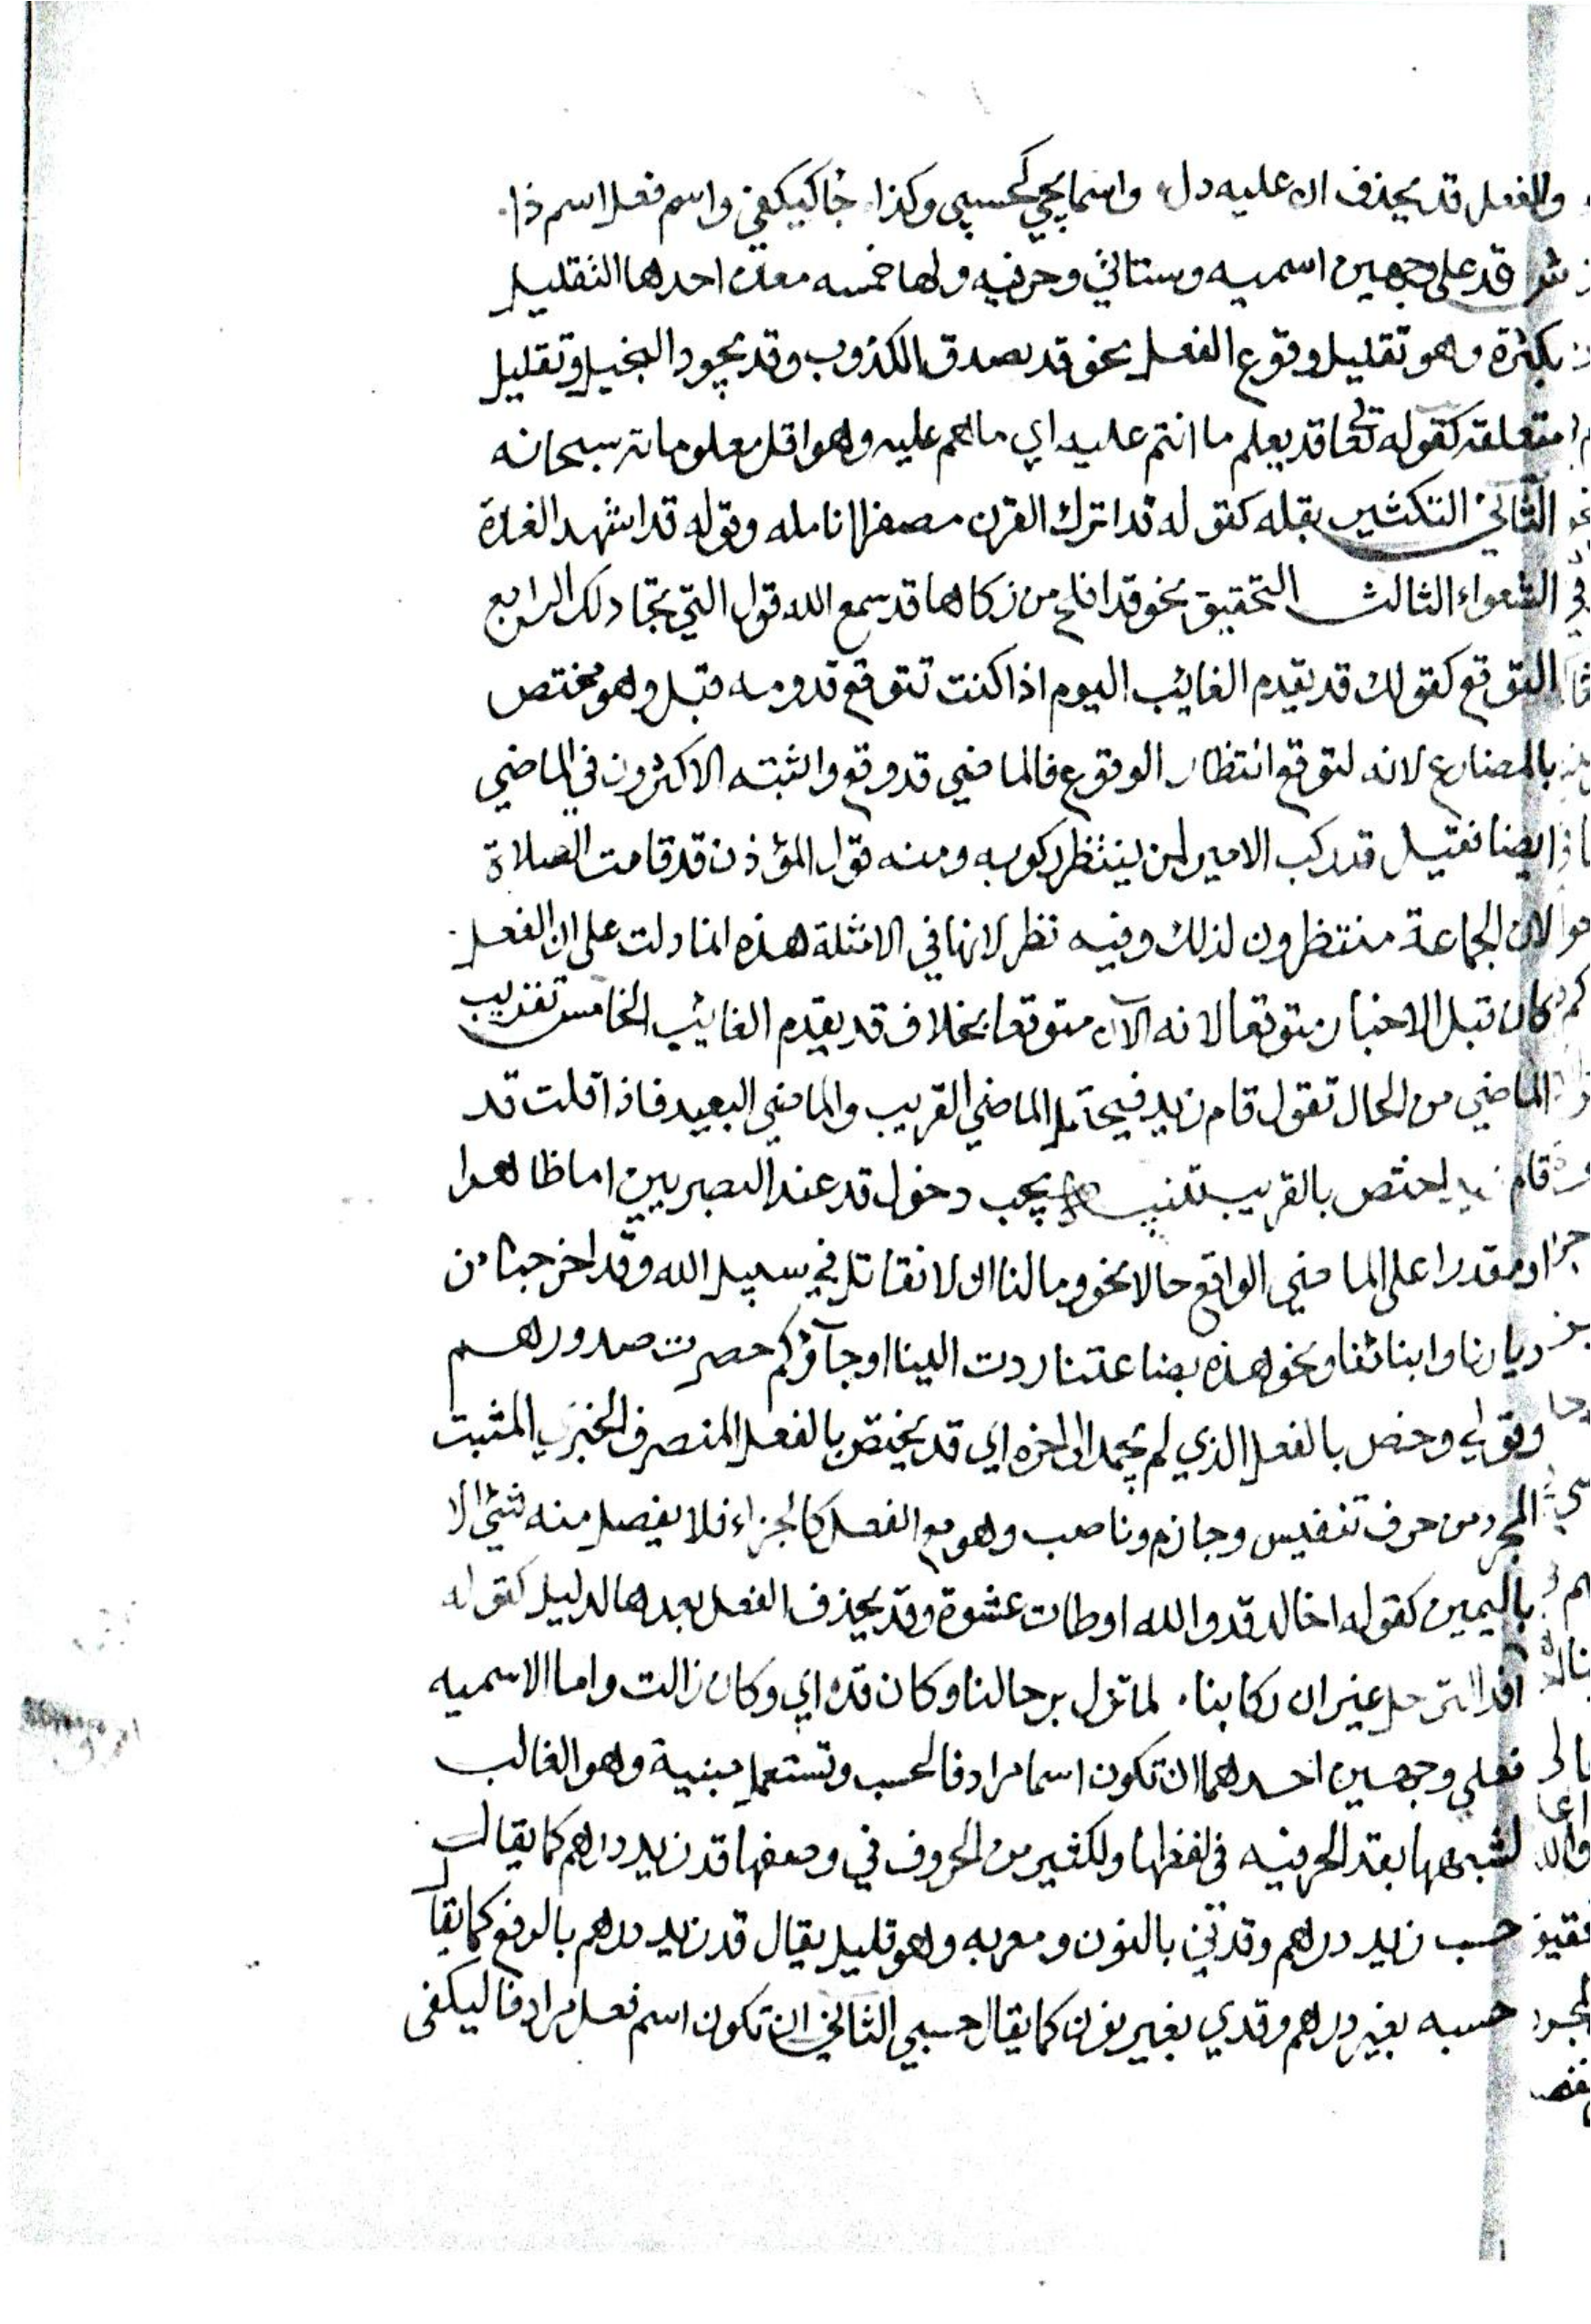 والفعل قد يحذف ان عليه دل واسما يجي كحسبي وكذا جا كيكفي واسم فعل اسم ذا
قد على وجهين اسميه وستاتي وحرفيه ولها خمسه معان احدها التقليل
بكثرة وهو تقليل وقوع الفعل نحو قد يصدق الكذوب وقد يجود البخيل وتقليل
متعلقه كقوله تعا قد يعلم ما انتم عليه اي ما هم عليه وهو اقل معلوماته سبحانه
الثاني التكثير بقله كقوله قد اترك القرن مصفرا انامله وقوله قد اشهد الغارة
الشعواء الثالث التحقيق نحو قد افلح من زكاها قد سمع الله قول التي تجادلك الرابع
التوقع كقولك قد يقدم الغايب اليوم اذا كنت تتوقع قدومه قبل وهو مختص
بالمضارع لانه لتوقع انتظار الوقوع فالماضي قد وقع واثبته الاكثرون في الماضي
ايضا فقيل قد ركب الامير لمن ينتظر ركوبه ومنه قول المؤذن قد قامت الصلاة
لان الجماعة منتظرون لذلك وفيه نظر لانها في الامثلة هذه انما دلت على ان الفعل
كان قبل الاخبار متوقعا لا انه الآن متوقعا بخلاف قد يقدم الغايب الخامس تقريب
الماضي من الحال تقول قام زيد فيحتمل الماضي القريب والماضي البعيد فاذا قلت قد
قام زيد اختص بالقريب تنبيه يجب دخول قد عند البصريين اما ظاهرا
او مقدرا على الماضي الواقع حالا نحو وما لنا ان لا نقاتل في سبيل الله وقد اخرجنا من
ديارنا وابنائنا ونحو هذه بضاعتنا ردت الينا او جآؤكم حصرت صدورهم
وقولي وخص بالفعل الذي لم يجمد الى اخره اي قد يختص بالفعل المتصرف الخبري المثبت
المجرد من حرف تنفيس وجازم وناصب وهو مع الفعل كالجزاء فلا يفصل منه شئ الا
باليمين كقوله اخالد قد والله اوطات عشوة وقد يحذف الفعل بعدها لدليل كقوله
افد الترحل غير ان ركابنا لما تزل برحالنا وكان قد اي وكان زالت واما الاسميه
فعلى وجهين احدهما ان تكون اسما مرادفا لحسب وتستعمل مبنية وهو الغالب
لشبهها بقد الحرفيه في لفظها ولكثير من الحروف في وضعها قد زيد درهم كما يقال
حسب زيد درهم وقدني بالنون ومعربه وهو قليل يقال قد زيد درهم بالرفع كما يقا
حسبه بغير درهم وقدي بغير نون كما يقال حسبي الثاني ان تكون اسم فعل مرادفا ليكفى